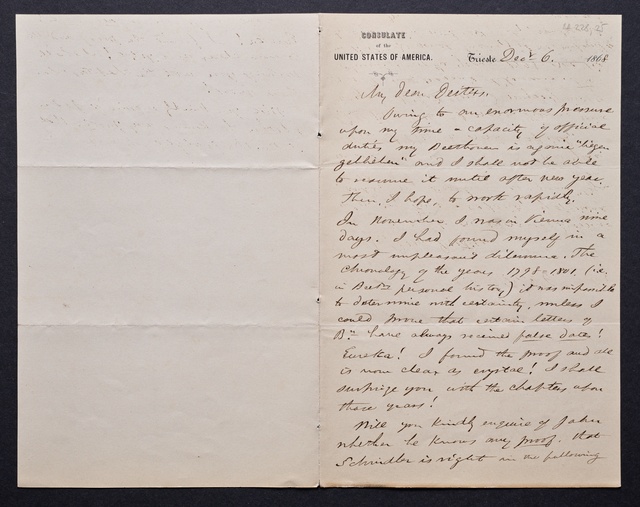 CONSULATE
of the
UNITED STATES OF AMERICA.
Trieste Decr 6. 1868
My dear Deiters.
Owing to an enormous pressure
upon my time & capacity of official
duties my Beethoven is again "liegen
geblieben" and I shall not be able
to resume it until after new year.
Then, I hope, to work rapidly.
In November I was in Vienna nine
days. I had found myself in a
most unpleasant dilemma. The
chronology of the years 1798-1801 (i.e.
in Beetn's personal history) it was impossible
to determine with certainty, unless I
could prove that certain letters of
Bn have always received false dates!
Eureka! I found the proof and all
is now clear as crystal! I shall
surprize you with the chapters upon
those years!
Will you kindly enquire of Jahn
whether he knows any proof that
Schindler is right in the following